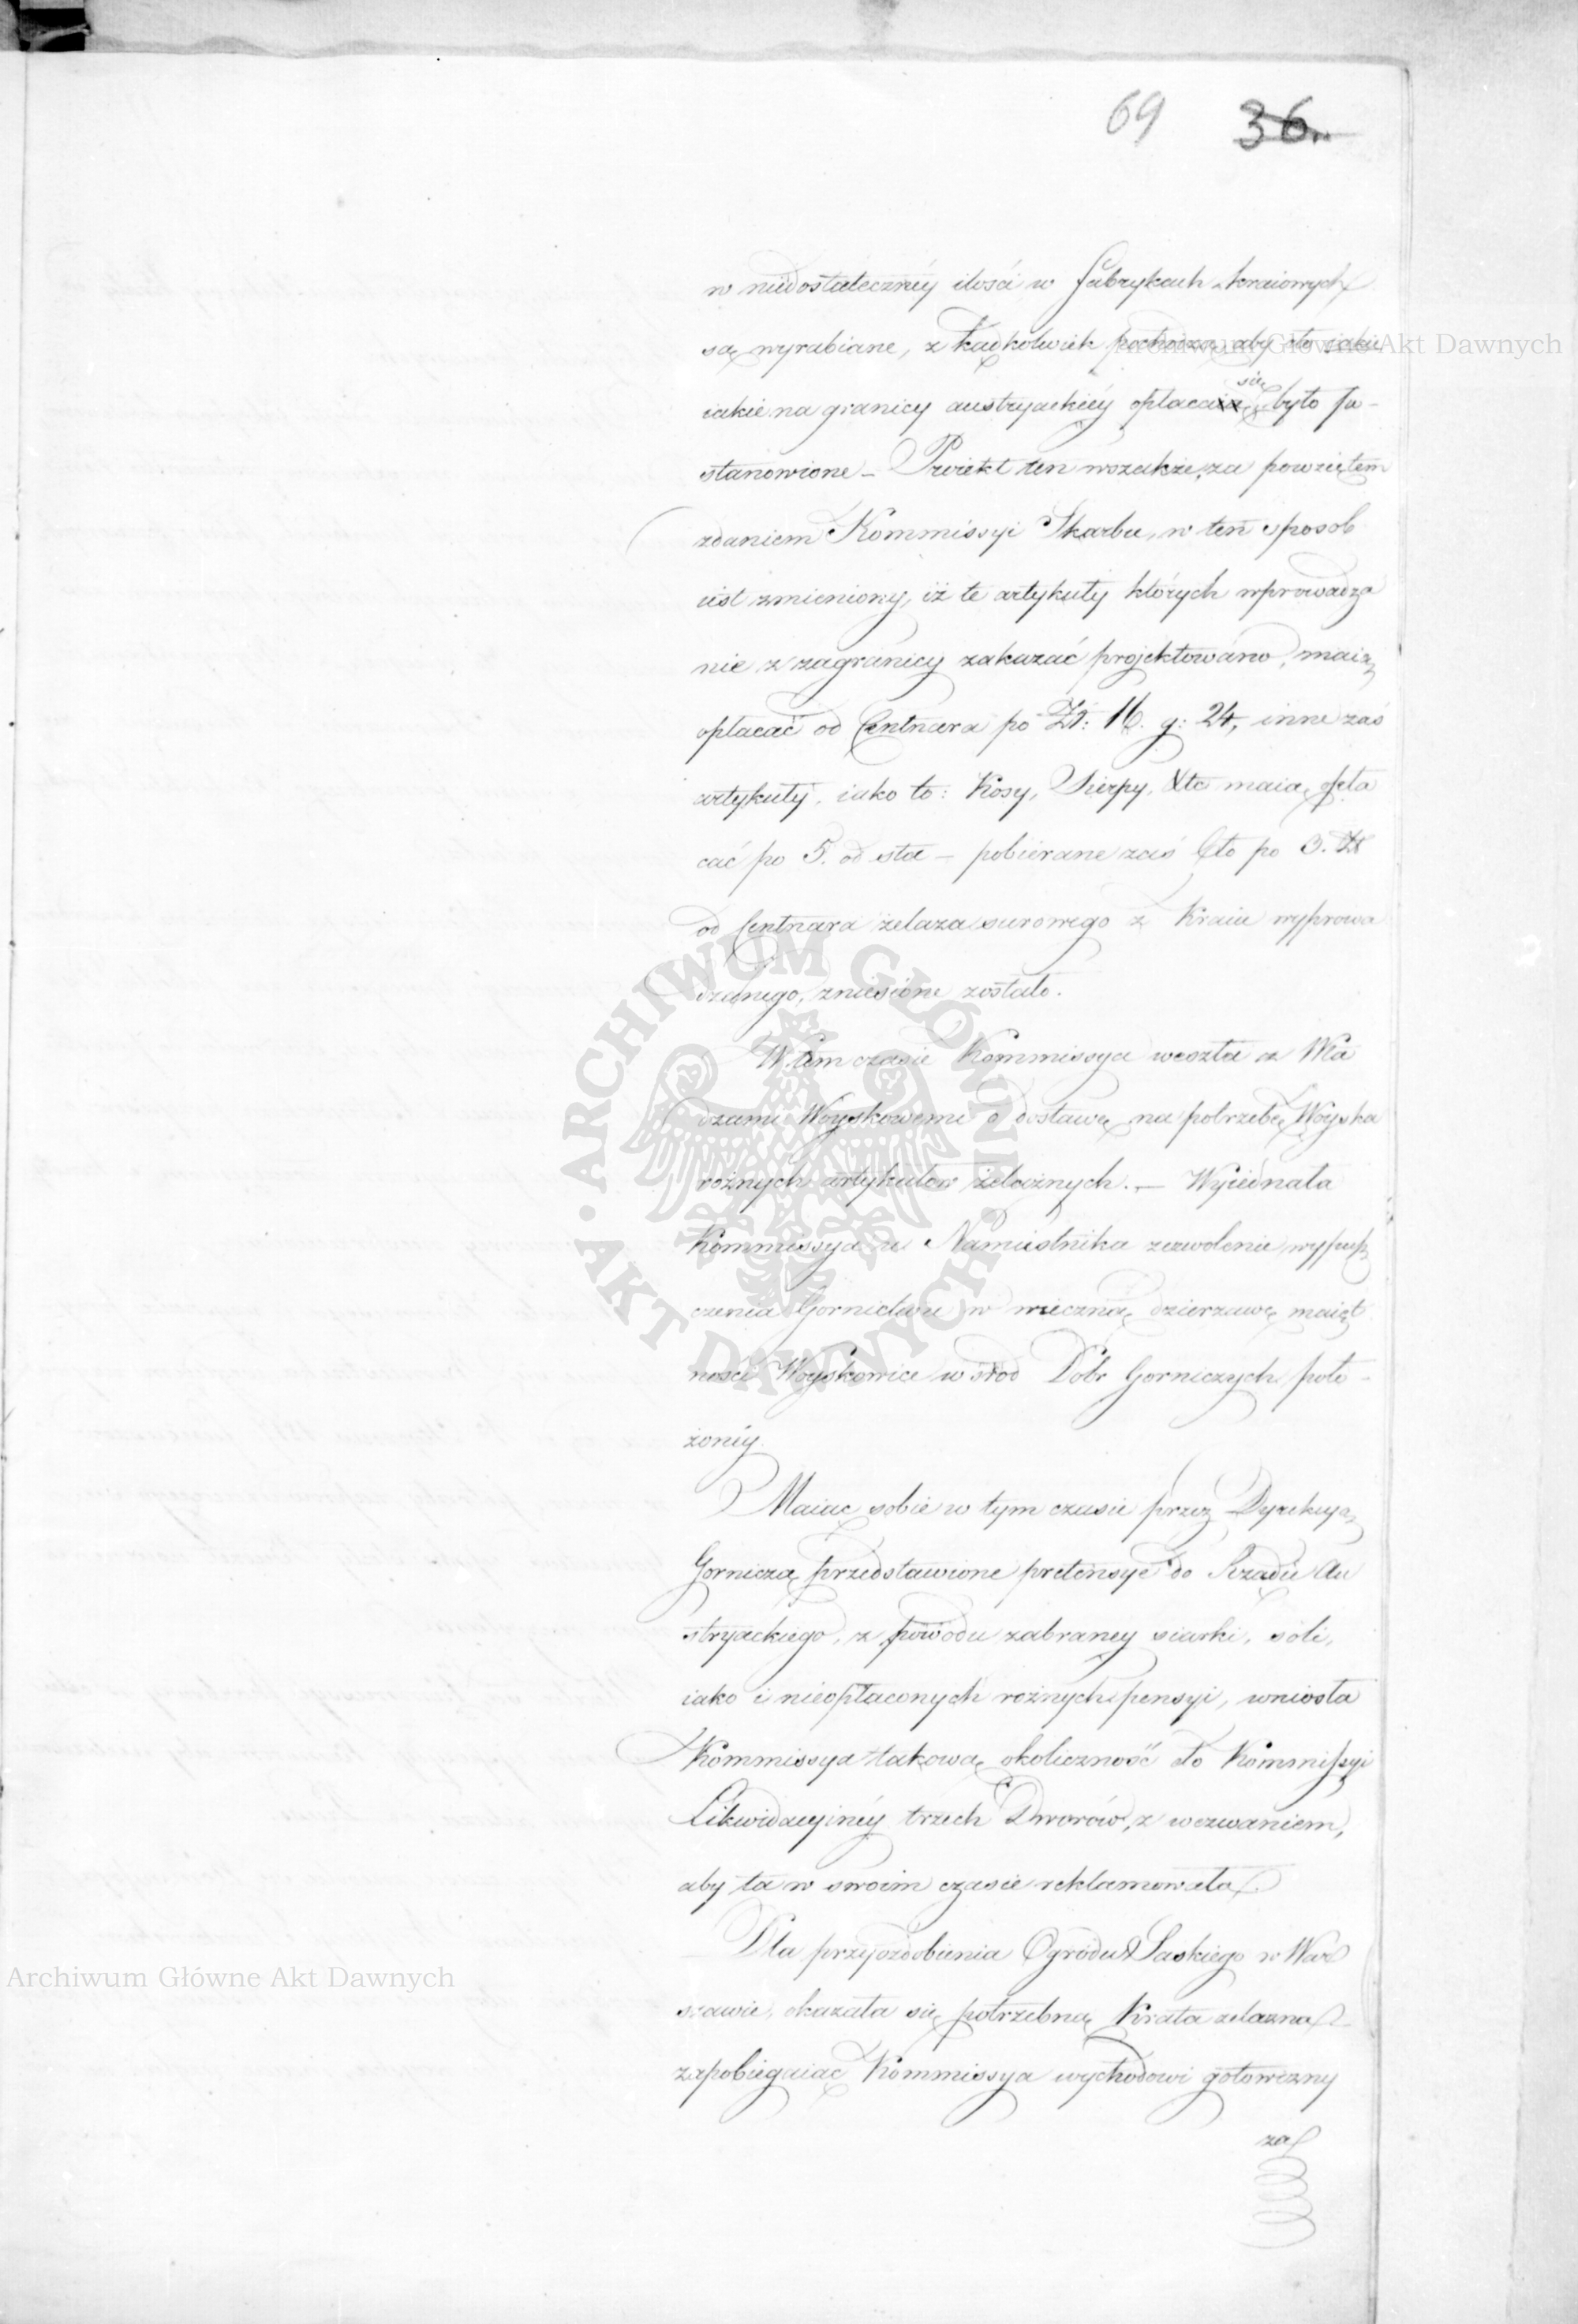 69 36.
w niedostateczney ilości w fabrykach kraiowych
są wyrabiane, z kądkolwiek pochodzą, aby cło iakie
iakie na granicy austryackiéy opłaca się było po-
stanowione – Proiekt ten wszakże, za powziętem
zdaniem Kommissyi Skarbu, w ten sposob
iest zmieniony, iż te artykuły których wprowadza
nie z zagranicy zakazać projektowano, maią
opłacać od Centnara po Zł: 16. g: 24, inne zaś
artykuły, iako to: Kosy, Sierpy, &tc maią opła
cać po 5. od sta – pobierane zaś Cło po 3. Zł
od Centnara żelaza surowego z Kraiu wyprowa
dzanego, zniesione zostało.
W tem czasie Kommissya weszła z Wła
dzami Woyskowemi o dostawę na potrzebę Woyska
rożnych artykułow żelaznych. – Wyiednała
Kommissya u Namiestnika zezwolenie wypusz
czenia Gornictwu w wieczną dzierzawę maięt
ności Woyskowice w środ Dobr Gorniczych poło-
żonéy.
Maiąc sobie w tym czasie przez Dyrekcyą
Gorniczą przedstawione pretensye do Rządu Au
stryackiego, z powodu zabraney siarki, soli,
iako i nieopłaconych rożnych pensyi, wniosła
Kommissya takową okoliczność do Kommissyi
Likwidacyinéy trzech Dworów, z wezwaniem,
aby ta w swoim czasie reklamowała.
Dla przyozdobienia Ogrodu Saskiego w War
szawie, okazała się potrzebną Krata żelazna
zapobiegaiąc Kommissya wychodowi gotowizny
za
Archiwum Główne Akt Dawnych
Archiwum Główne Akt Dawnych
ARCHIWUM GŁÓWNE AKT DAWNYCH